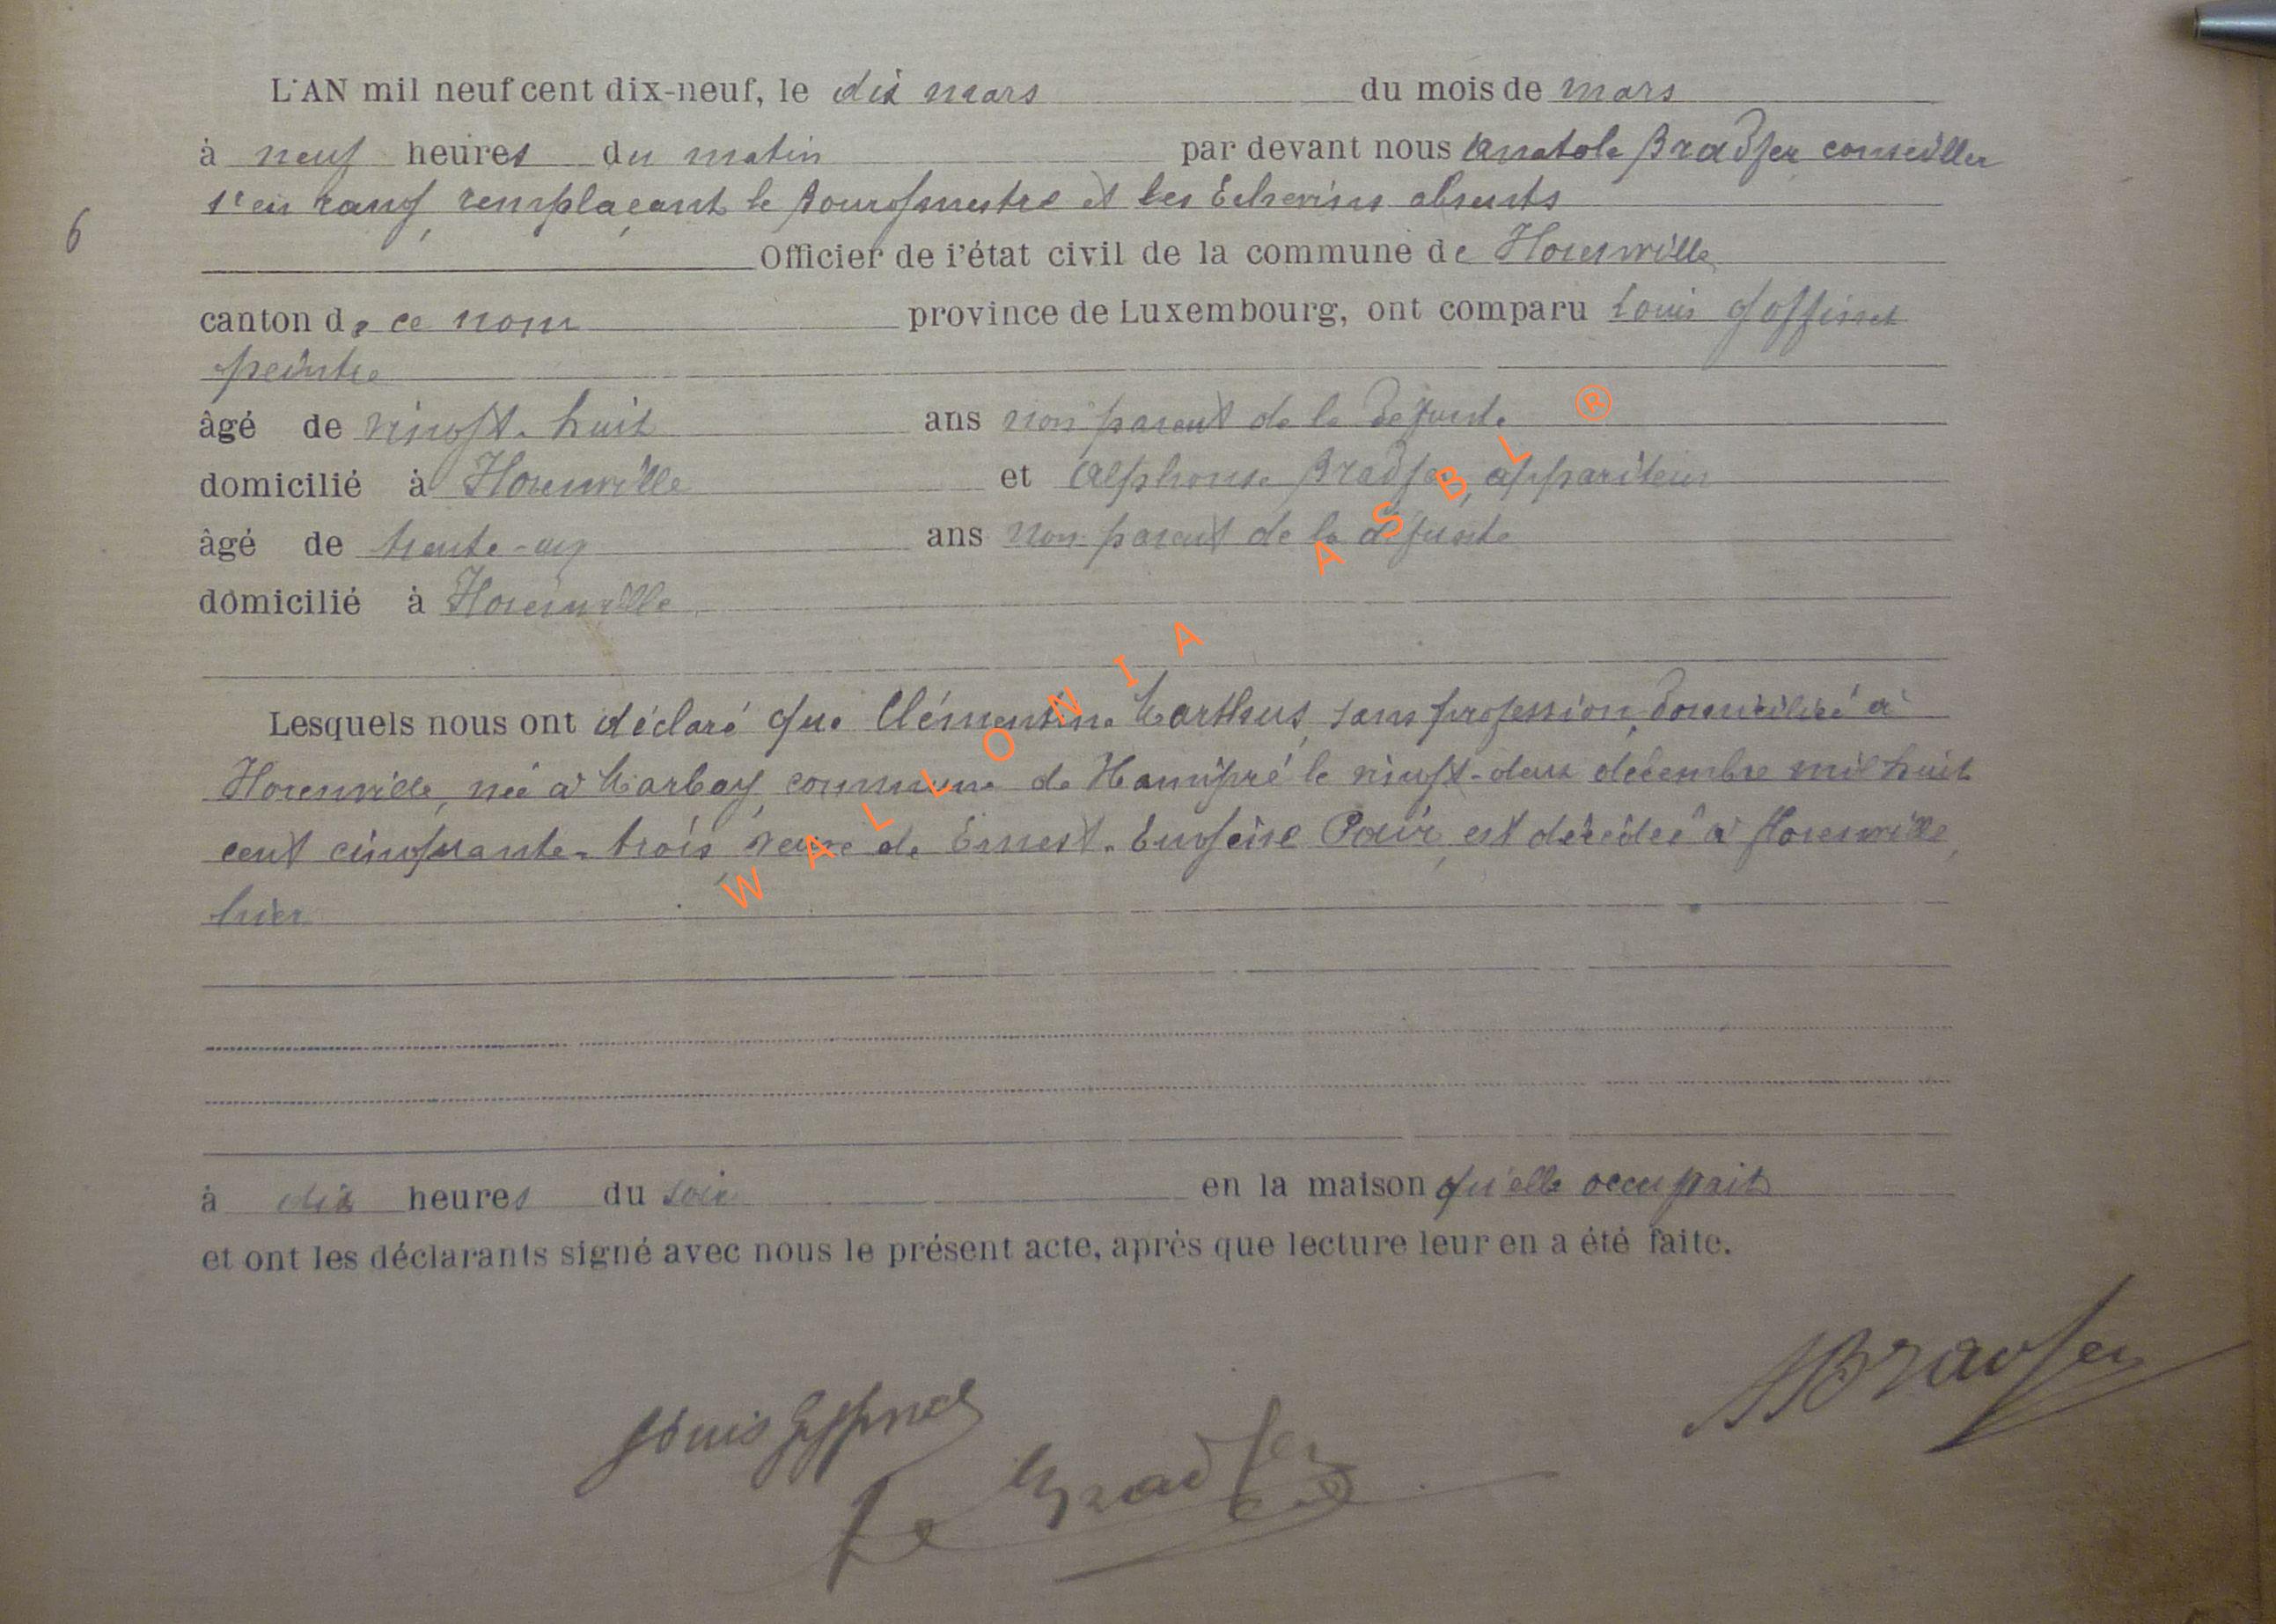 L'AN mil neuf cent dix-neuf, le dix mars du mois de mars
à neuf heures du matin par devant nous Anatole Bradfer conseiller
1er en rang, remplaçant le Bourgmestre et les Echevins absents
6
Officier de l'état civil de la commune de Florenville
canton de ce nom province de Luxembourg, ont comparu Louis Goffinet
peintre
âgé de vingt-huit ans non parent de la défunte
domicilié à Florenville et Alphonse Bradfer, appariteur
âgé de trente-un ans non parent de la défunte
domicilié à Florenville
Lesquels nous ont déclaré que Clémentine sans profession, domiciliée à
Florenville, née à Marbay, commune de Hamipré le vingt-deux décembre mil huit
cent cinquante-trois, veuve de Ernest-Eugène est décédée à Florenville,
hier
à dix heures du soir en la maison qu'elle occupait
et ont les déclarants signé avec nous le présent acte, après que lecture leur en a été faite.
ABradfer
Louis Goffinet
Bradfer
WALLONIA ASBL ®